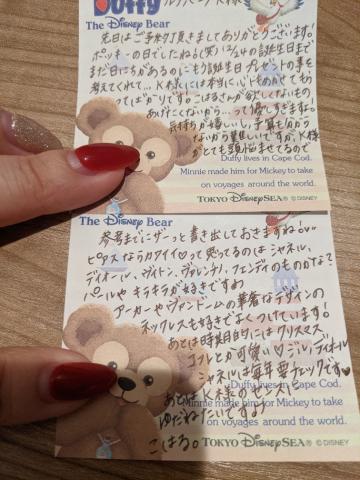 Duffy
K様
The Disney Bear
先日はご予約頂きましてありがとうございます!
ポッキーの日でしたね!(笑) 12/24の誕生日まで
まだ日にちがあるのにもう誕生日プレゼントの事を
考えてくれて…K様には本当に心ときめかせてもら
ってばかりです。こはるさんが欲しくてしないもの
あげたくないから…って優しすぎます!
気持ちが嬉しいし、予算も分から
ないから難しいですが、K様
がとても頭悩ませてるので
Duffy lives in Cape Cod.
Minnie made him for Mickey to take
on voyages around the world.
TOKYO DISNEYSEA® ©DISNEY
The Disney Bear
参考までにザーッと書き出しておきますね!
ピアスならカワイイ♡って思ってるのはシャネル、
ディオール、ヴィトン、ヴァレンティノ、フェンディのものかな?
パールやキラキラが好きですね
アーカーやヴァンドームの華奢なデザインの
ネックレスも好きでよくつけています!
あとは時期的にはクリスマス
コフレとか可愛い♡ジル、ディオール
シャネルは毎年要チェックです♥
あとはK様のセンスに
ゆだねたいですよ♪
こはる。
Duffy lives in Cape Cod.
Minnie made him for Mickey to take
on voyages around the world.
TOKYO DISNEYSEA® ©DISNEY